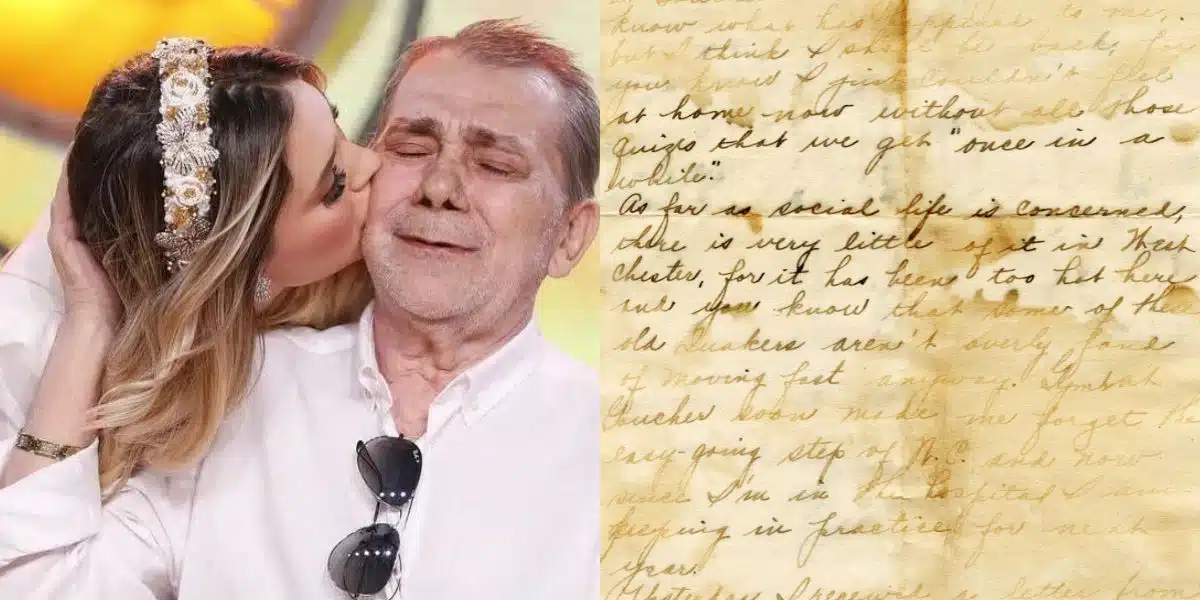 know what has happened to me,
but I think I shall be back, for
you know I just couldn't feel
at home now without all those
quizes that we get "once in a
while".
As far as social life is concerned,
there is very little of it in West
Chester, for it has been too hot here
and you know that some of these
old Quakers aren't overly fond
of moving fast anyway.
soon made me forget the
easy-going step of N.C. and now
since I'm in the hospital I am
keeping in practice for next
year.
Yesterday I received a letter from